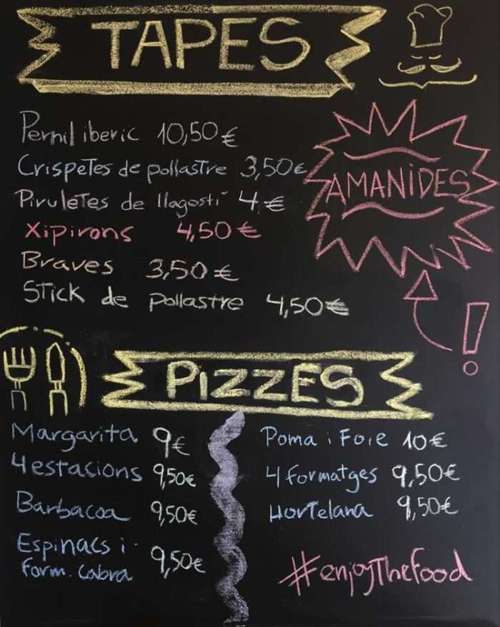 TAPES
Pernil iberic 10,50€
Crispetes de pollastre 3,50€
Piruletes de llagostí 4€
Xipirons 4,50€
Braves 3,50€
Stick de Pollastre 4,50€
AMANIDES
!
PIZZES
Margarita 9€
4 estacions 9,50€
Barbacoa 9,50€
Espinacs i
form. cabra 9,50€
Poma i Foie 10€
4 formatges 9,50€
Hortelana 9,50€
#enjoyThefood